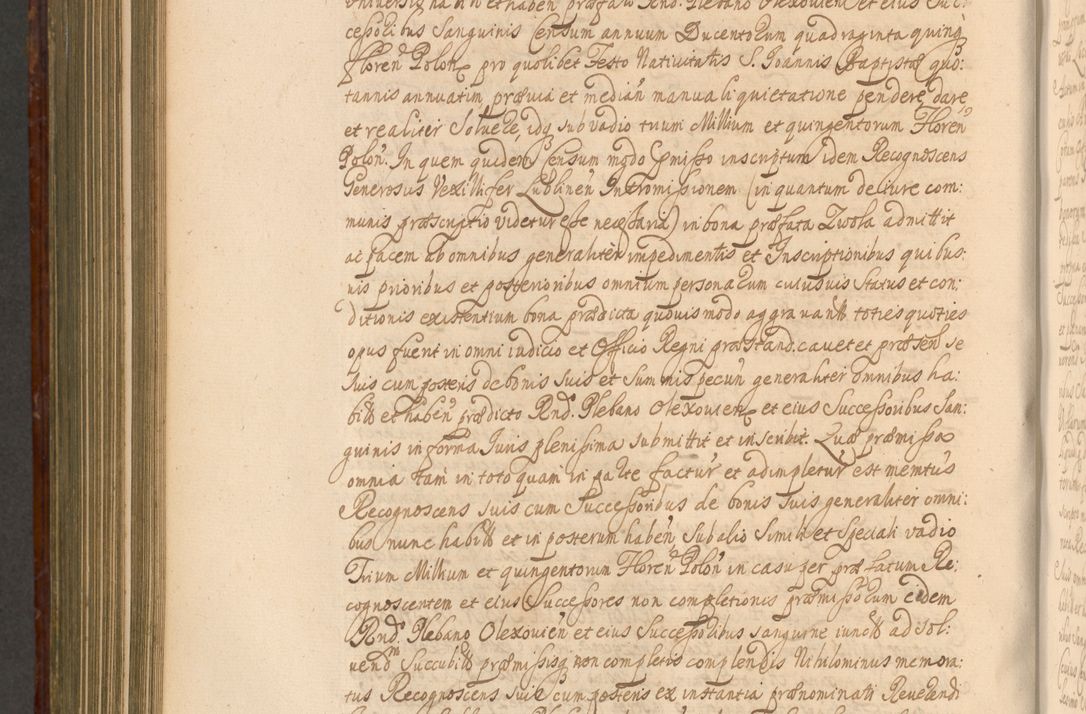 universis habitis et haben præfato Rndo. Plebano Olexovien et eius Suc:
cessoribus Sanguinis Censum annuum Ducentorum quadraginta quinq
Floren Polon pro quolibet Festo Nativitatis S. Joannis Baptystæ quo:
tannis annuatim prævia et median manuali quietatione pendere, dare
et realiter Solvere, idq sub vadio trium Millium et quingentorum Floren
Polon. In quem quidem Censum modo præmisso inscriptum idem Recognoscens
Generosus Vexillifer Lublinen Intromissionem (in quantum de iure com:
munis præscriptio videtur esse necessaria) in bona præfata Zwola admittit
ac pacem ab omnibus generaliter impedimentis et Inscriptionibus quibus:
vis prioribus et posterioribus omnium personarum cuiusvis Status et con:
ditionis existentium bona prædicta quovis modo aggravantt toties quoties
opus fuerit in omni iudicio et Officio Regni præstand. cavet et præsen se
suis cum posteris de bonis suis et Summis pecun generaliter omnibus ha:
bitt et haben prædicto Rnd. Plebano Olexovien et eius Successoribus San:
guinis in forma Juris plenissima submittit et inscribit. Quæ præmissa
omnia tam in toto quam in parte factur et adimpletur est memtus
Recognoscens suis cum Successoribus de bonis suis generaliter omni:
bus nunc habitt et in posterum haben sub alio Simili et Speciali vadio
Trium Millium et quingentorum Floren Polon in casu per præfatum Re:
cognoscentem et eius Successores non completionis præmissorum eidem
Rnd. Plebano Olexovien et eius Successoribus sanguine iunctt ad sol:
vend Succubitt præmissisq non completis complendis Nihilominus memora:
tus Recognoscens suis cum posteris ex instantia prænominati Reverendi